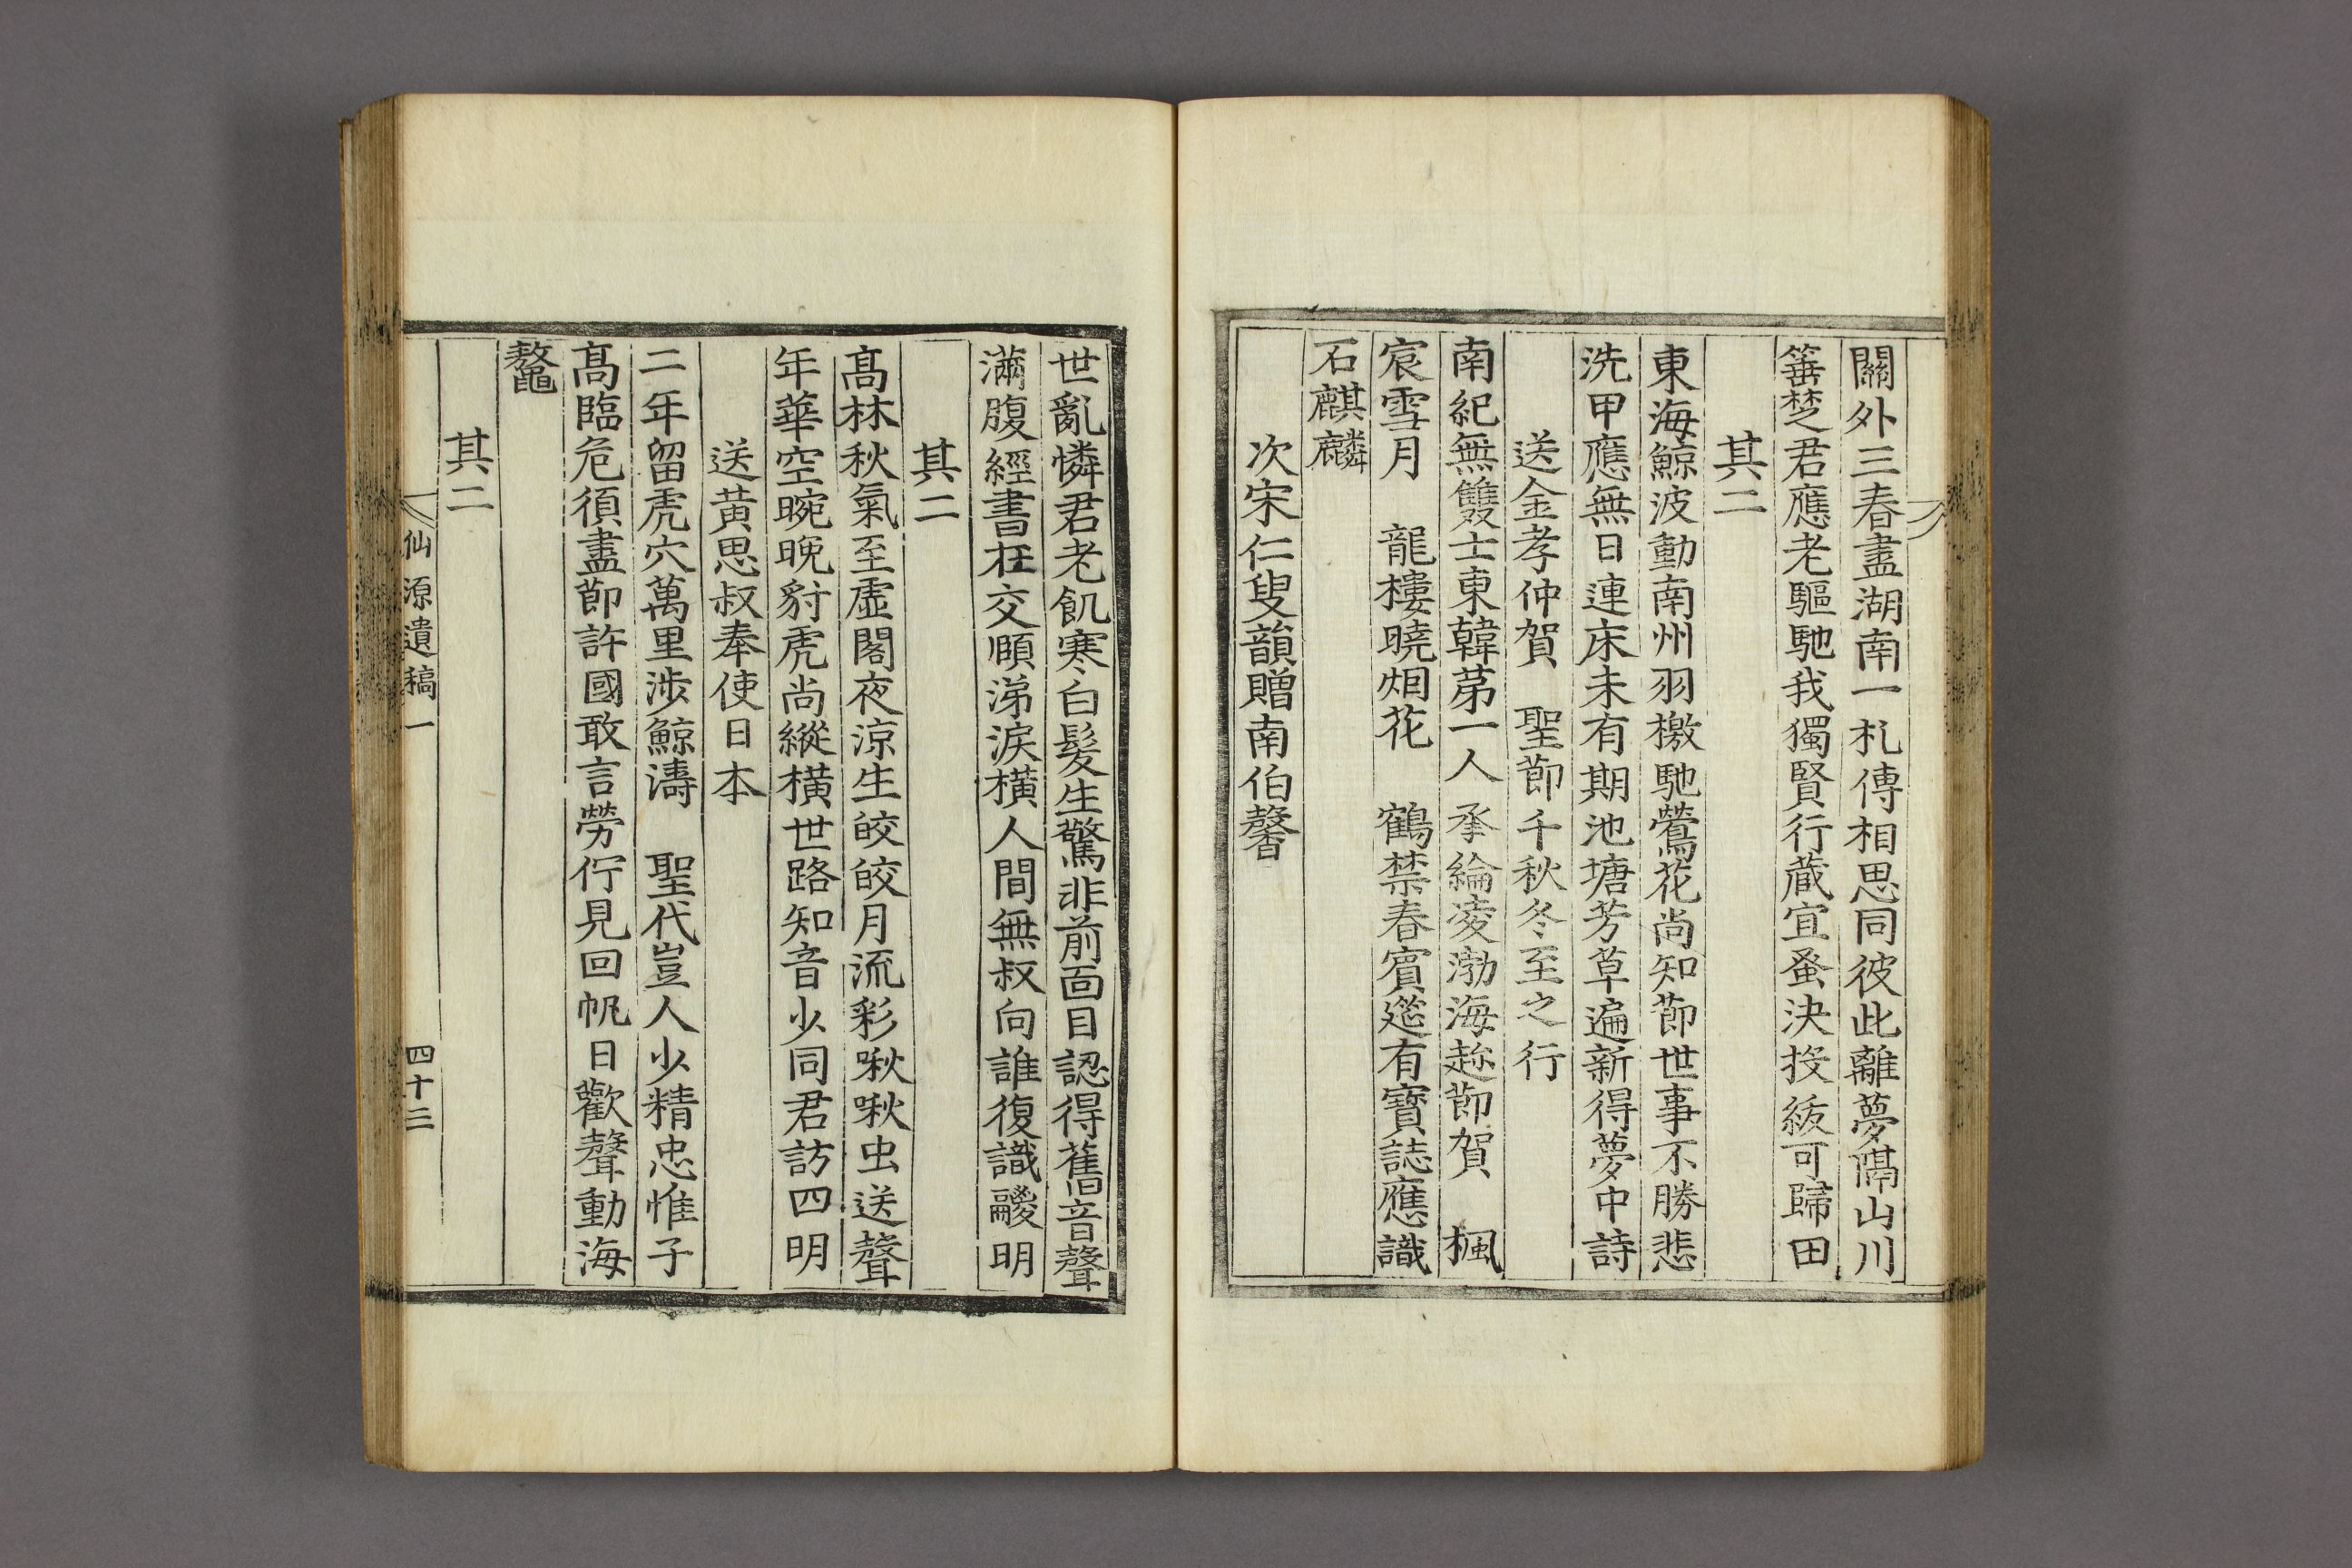 關外三春盡湖南一札傳相思同彼此離夢隔山川
箠楚君應老驅馳我獨賢行藏宜蚤決投紱可歸田
其二
東海鯨波動南州羽檄馳鶯花尚知節世事不勝悲
洗甲應無日連床未有期池塘芳草遍新得夢中詩
送金孝仲賀 聖節千秋冬至之行
南紀無雙士東韓苐一人承綸凌渤海趂節賀 楓
宸雪月 龍樓曉烟花 鶴禁春賓筵有寶誌應識
石麒麟
次宋仁叟韻贈南伯馨
世亂憐君老飢寒白髮生驚非前面目認得舊音聲
滿腹經書在交頤涕淚橫人間無叔向誰復識鬷明
其二
髙林秋氣至虛閣夜涼生皎皎月流彩啾啾虫送聲
年華空晼晚豺虎尚縱橫世路知音少同君訪四明
送黃思叔奉使日本
二年留虎穴萬里涉鯨濤 聖代豈人少精忠惟子
髙臨危須盡節許國敢言勞佇見回帆日歡聲動海
鼇
其二
仙源遺稿一
四十三